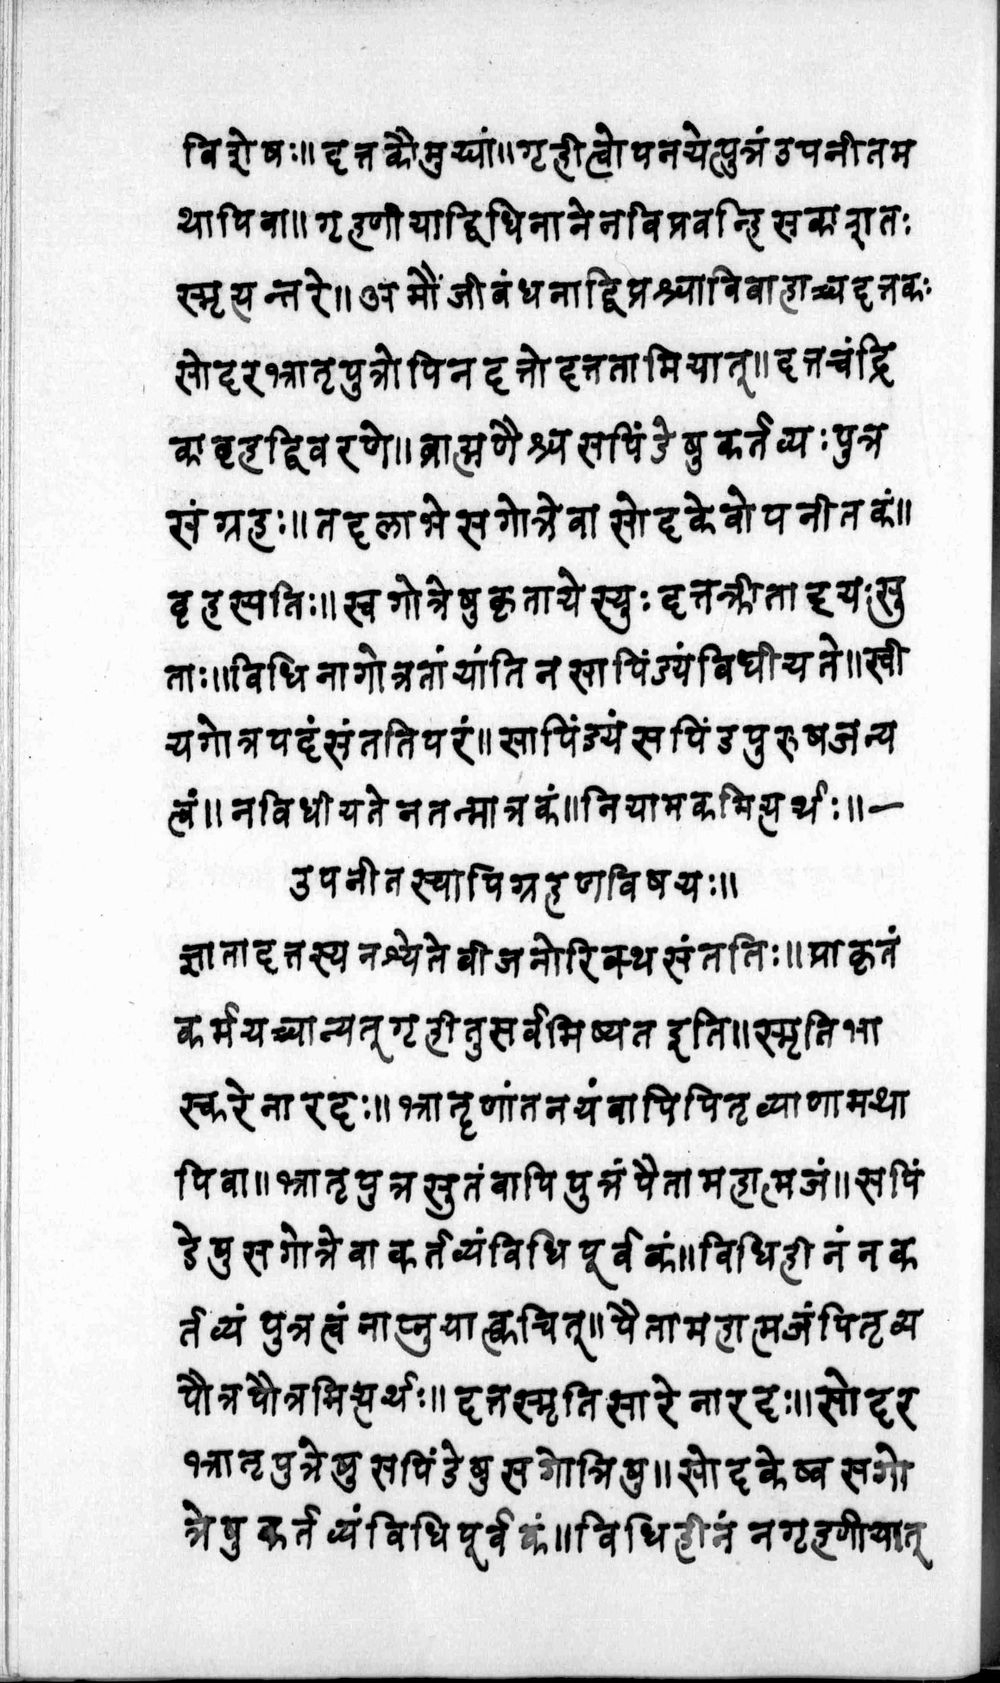 विशेषः॥ दत्तकौमुद्यां॥ गृहीत्वोपनयेत्पुत्रं उपनीतम
थापिवा॥ गृह्णीयाद्विधिनानेनविप्रवन्हिसकाशतः
स्मृत्यन्तरे॥ आमौंजीबंधनाद्विप्रश्चाविवाहाच्चदत्तकः
सोदरभ्रातृपुत्रोपिनदत्तोदत्ततामियात्॥ दत्तचंद्रि
काबृहद्विवरणे॥ ब्राह्मणैश्चसपिंडेषुकर्तव्यःपुत्र
संग्रहः॥ तदलाभेसगोत्रेवासोदकेवोपनीतकं॥
वृहस्पतिः॥ स्वगोत्रेषुकृतायेस्युः दत्तक्रीतादयःसु
ताः॥ विधिनागोत्रतांयांतिनसापिंड्यंविधीयते॥ स्वी
यगोत्रपदंसंततिपरं॥ सापिंड्यंसपिंडपुरुषजन्य
त्वं॥ नविधीयतेनतन्मात्रकं॥ नियामकमित्यर्थः॥—
उपनीतस्यापिग्रहणविषयः॥
ज्ञातादत्तस्यनश्येतेबीजनोरिक्थसंततिः॥ प्राकृतं
कर्मयच्चान्यत्गृहीतुसर्वमिष्यतइति॥ स्मृतिभा
स्करेनारदः॥ भ्रातॄणांतनयंवापिपितृव्याणामथा
पिवा॥ भ्रातृपुत्रसुतंवापिपुत्रंपैतामहात्मजं॥ सपिं
डेषुसगोत्रेवाकर्तव्यंविधिपूर्वकं॥ विधिहीनंनक
र्तव्यं पुत्रत्वंनाप्नुयात्क्वचित्॥ पैतामहात्मजंपितृव्य
पौत्रपौत्रमित्यर्थः॥ दत्तस्मृतिसारेनारदः॥ सोदर
भ्रातृपुत्रेषुसपिंडेषुसगोत्रिषु॥ सोदकेष्वसगो
त्रेषुकर्तव्यंविधिपूर्वकं॥ विधिहीनं नगृह्णीयात्